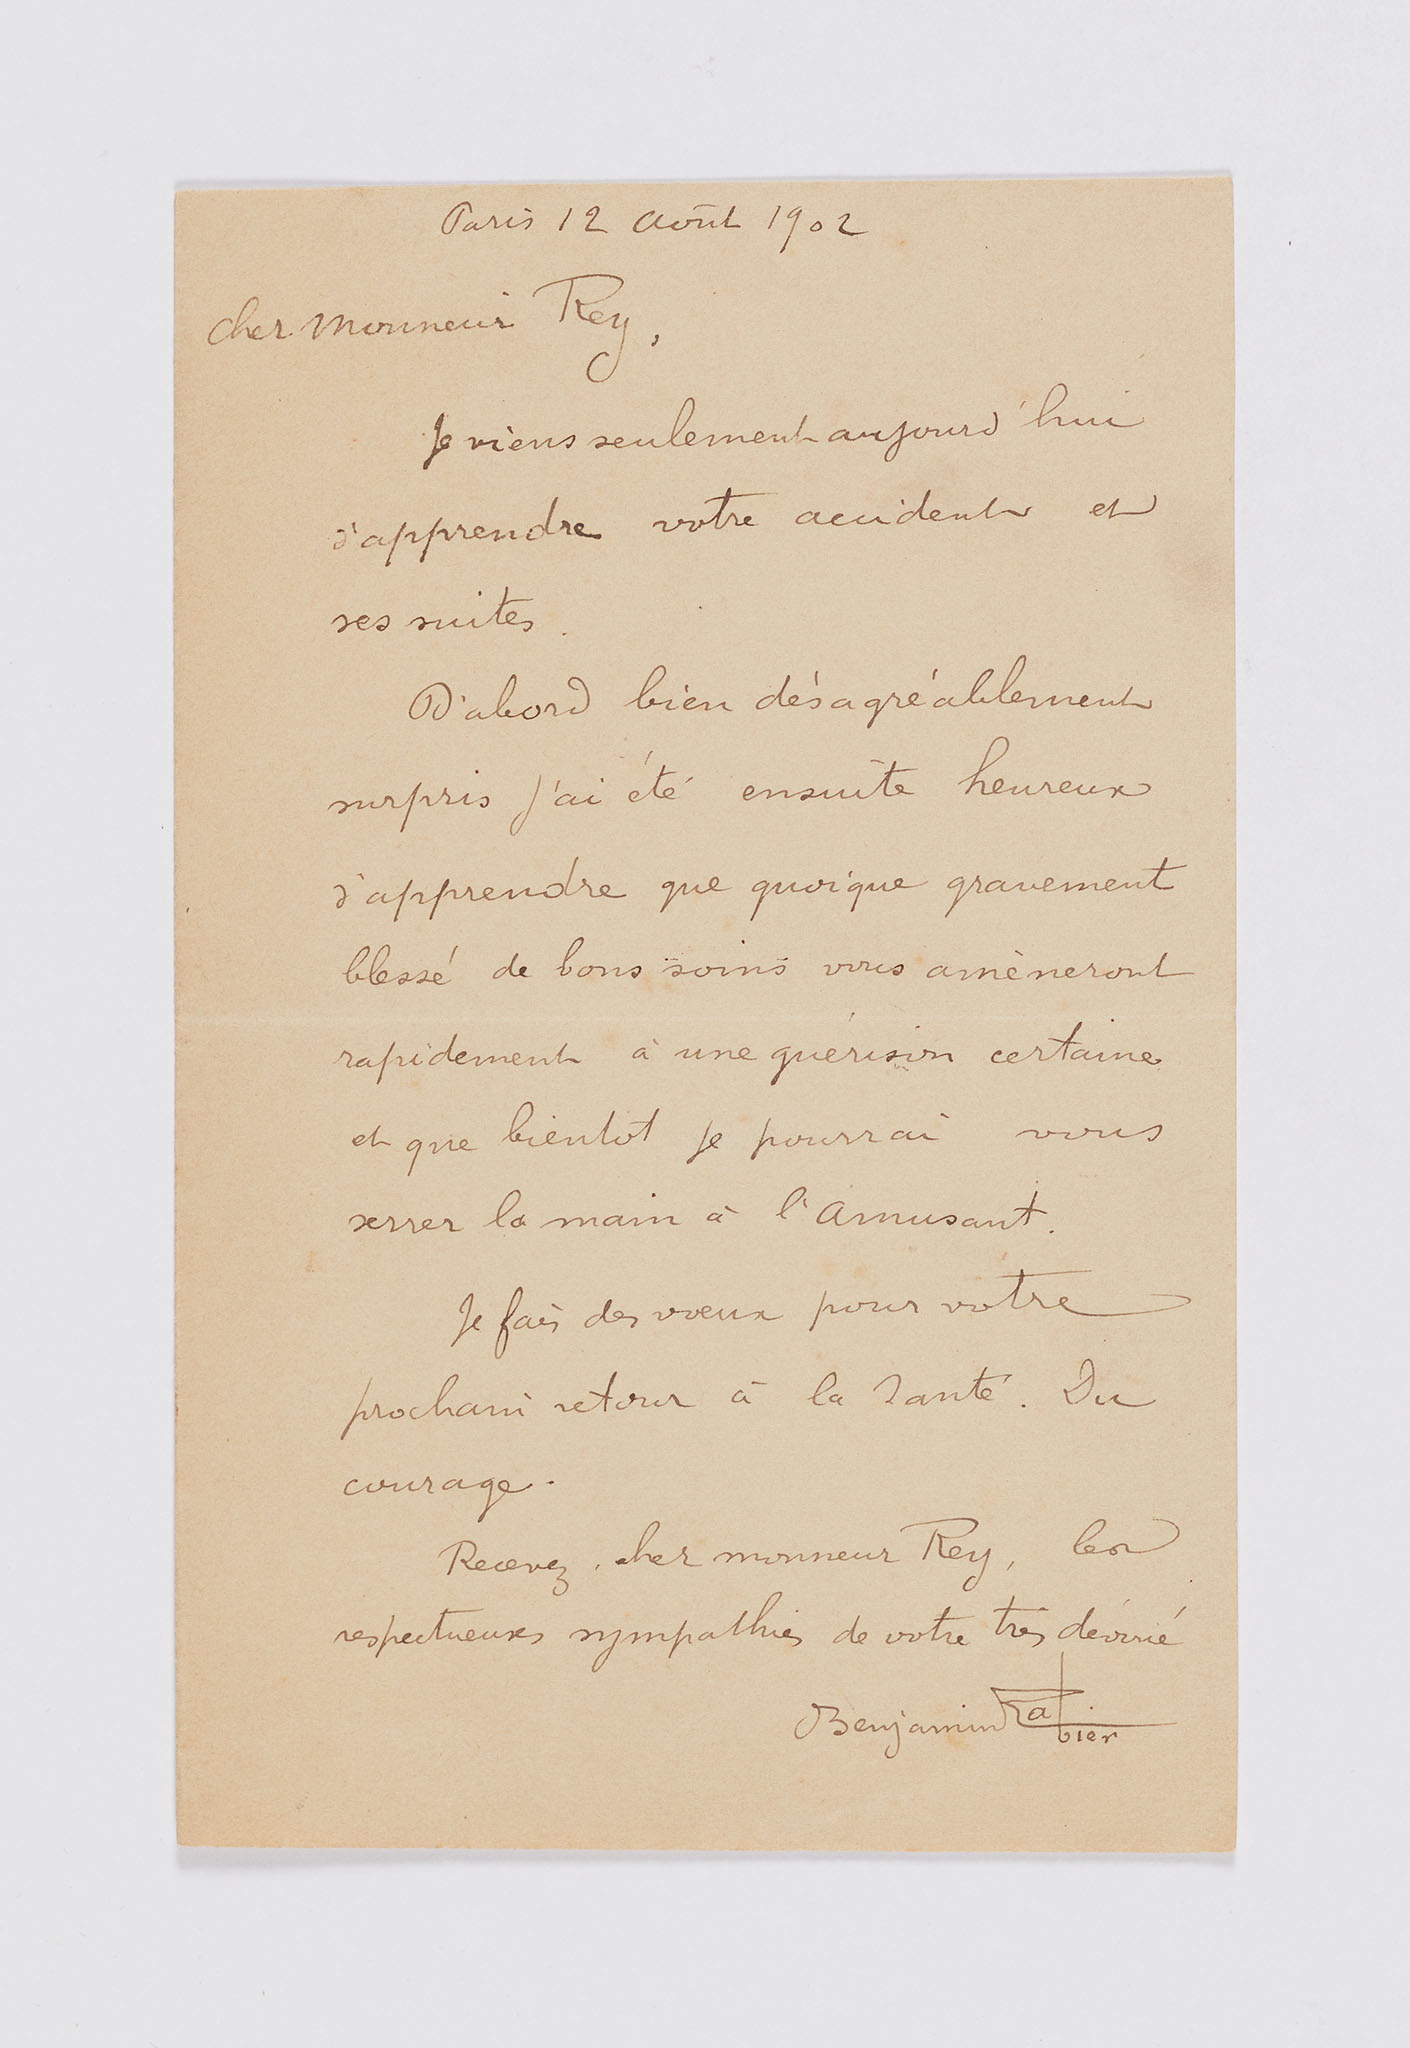 Paris 12 août 1902
Cher Monsieur Rey,
Je viens seulement aujourd'hui
d'apprendre votre accident et
ses suites.
D'abord bien désagréablement
surpris j'ai été ensuite heureux
d'apprendre que quoique gravement
blessé de bons soins vous amèneront
rapidement à une guérison certaine
et que bientot je pourrai vous
serrer la main à l'Amusant.
Je fais des vœux pour votre
prochain retour à la santé. Du
courage.
Recevez, cher monsieur Rey, les
respectueuses sympathies de votre très dévoué
Benjamin Rabier